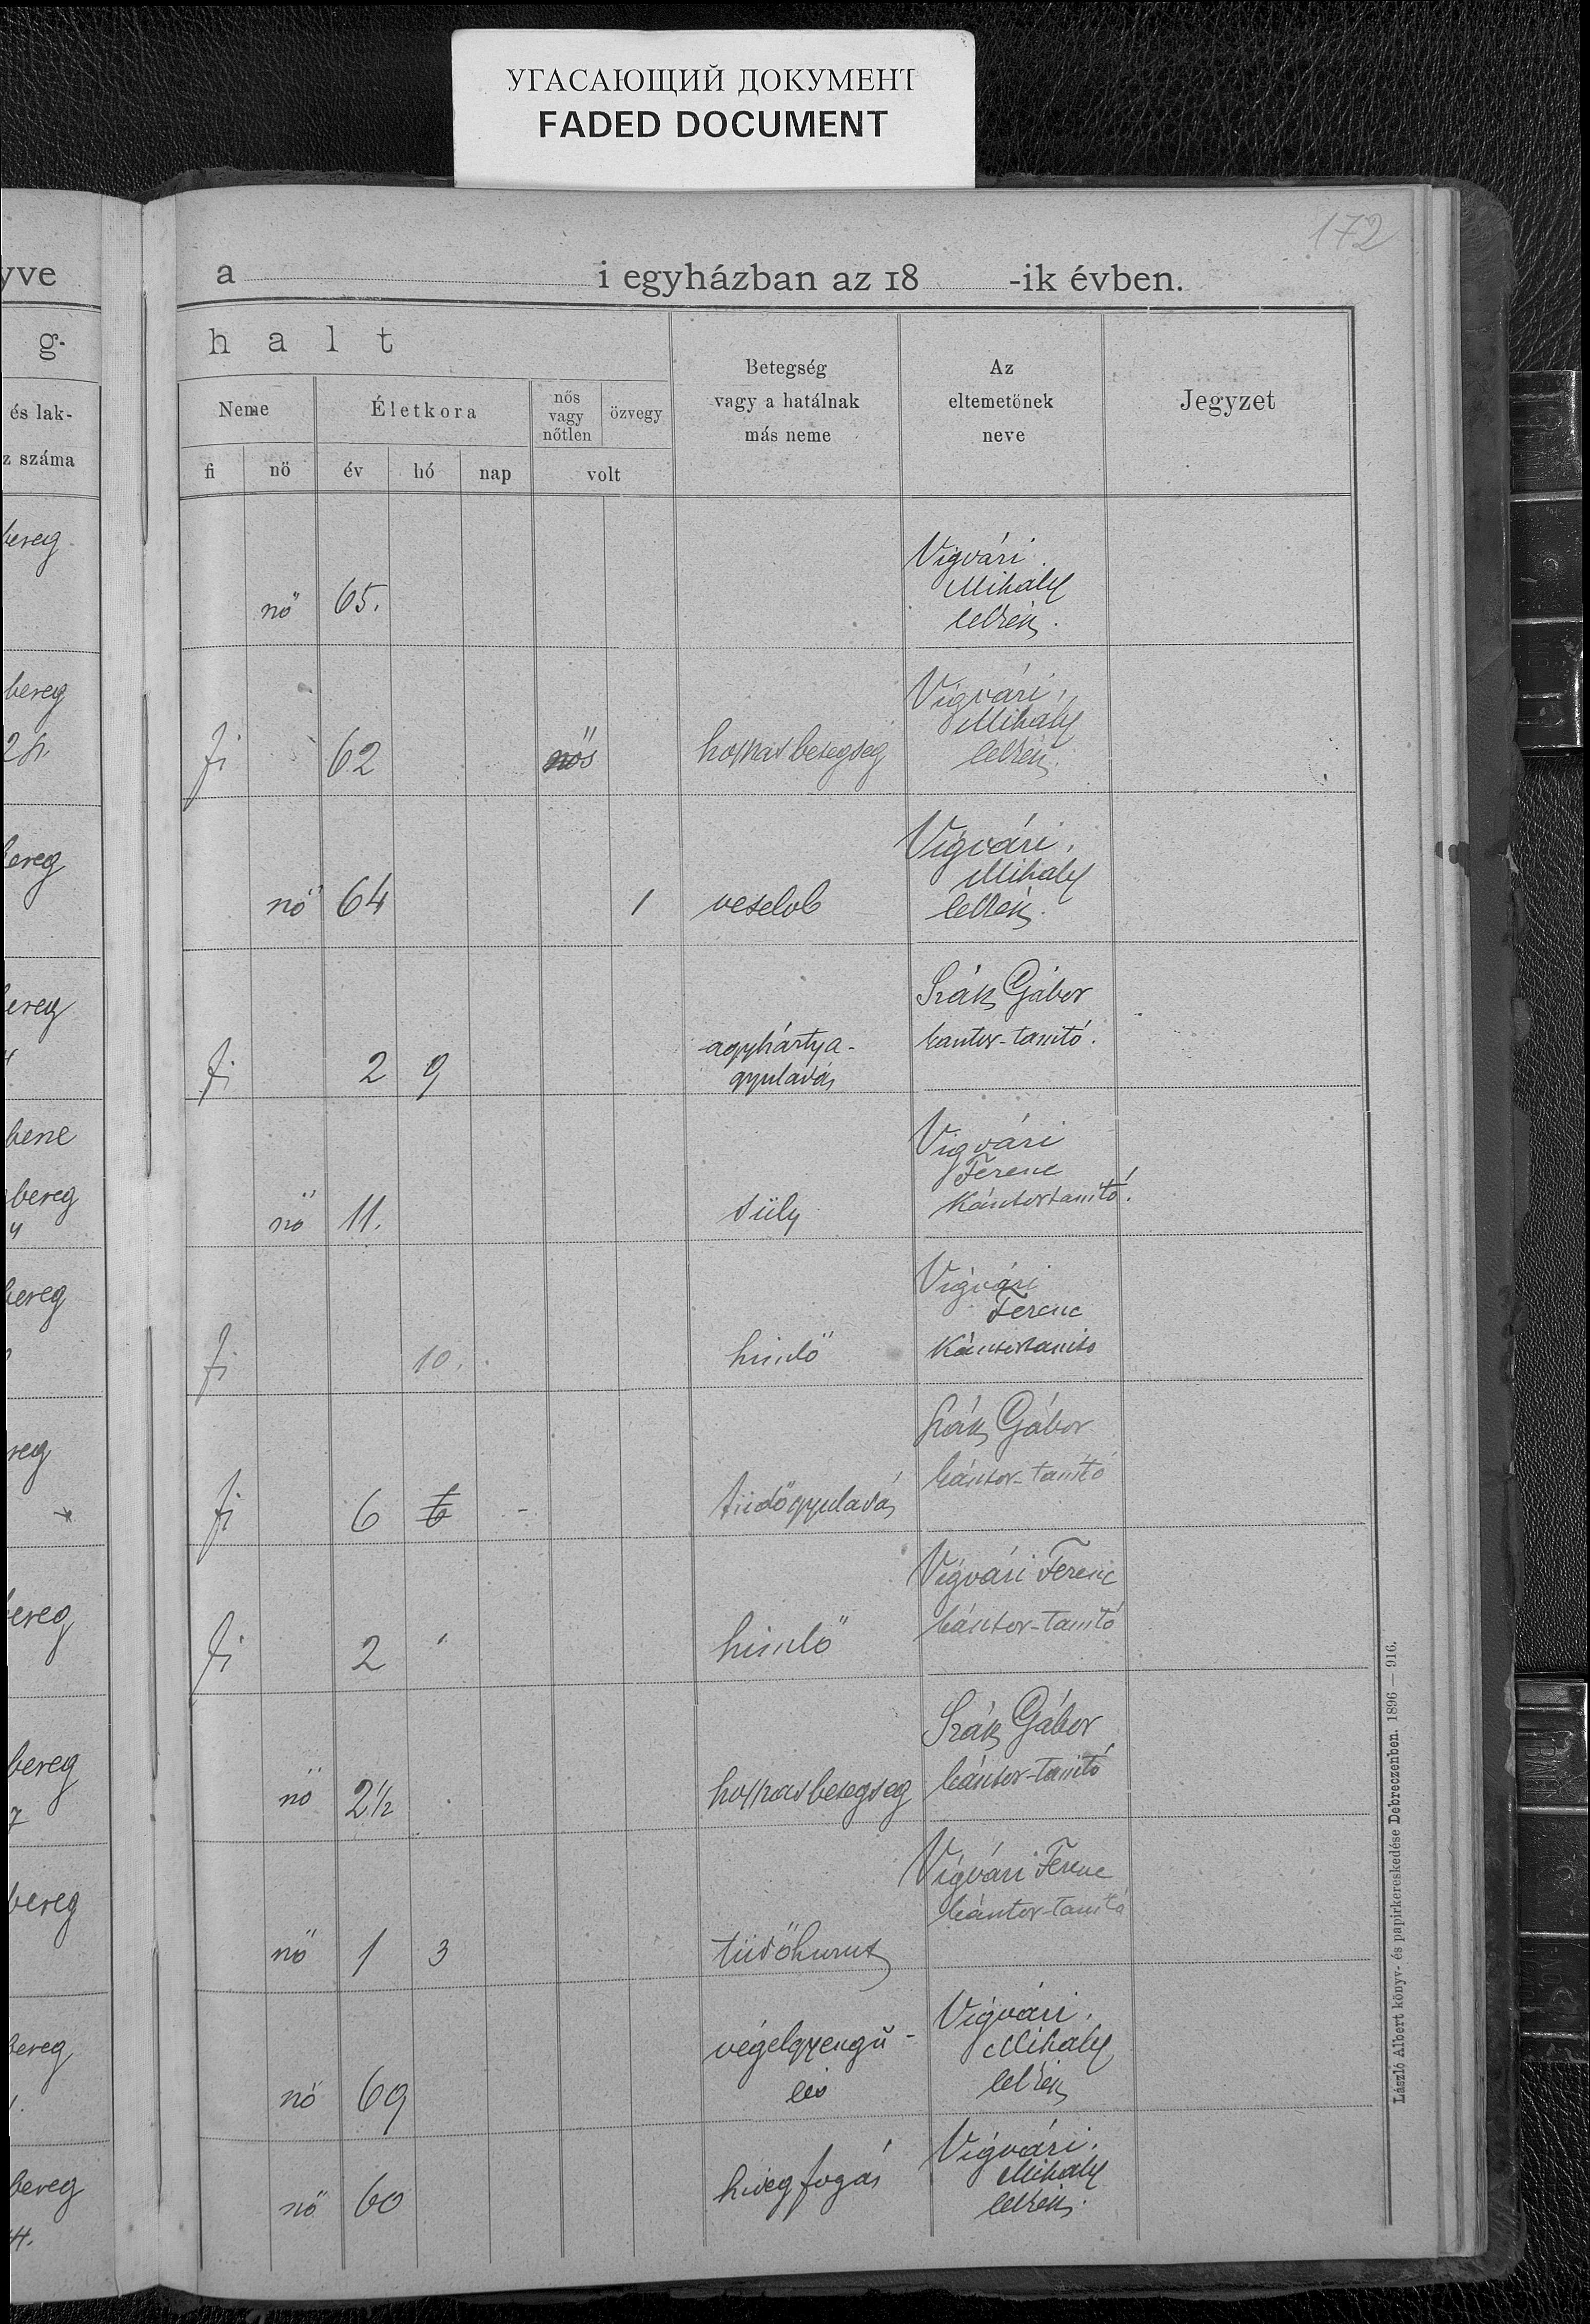 УГАСАЮЩИЙ ДОКУМЕНТ
FADED DOCUMENT
172
yve
a i egyházban az 18 -ik évben.
g.
halt
és lak-
z száma
Neme
Életkora
nős
vagy
nőtlen
özvegy
fi
nö
év
hó
nap
volt
Betegség
vagy a halálnak
más neme
Az
eltemetőnek
neve
Jegyzet
bereg
nő 65.
Vigvári
Mihály
lelkész.
bereg
fi 62 nős hashasbetegség
Vigvári
Mihály
lelkész.
bereg
nő 64 1 veselob
Vigvári
Mihály
lelkész.
bereg
fi 2 9 agyhártya-
gyuladás
Szák Gábor
kantor-tanító.
bene
bereg
nő 11. süly
Vigvári
Ferenc
Kántortanító.
bereg
fi 10. himlő
Vigvári
Ferenc
Kántortanito
reg
fi 6 6 - tüdőgyuladás
Szák Gábor
kántor-tanító
bereg
fi 2 himlő
Vigvári Ferenc
kántor-tanító
bereg
nő 2 1/2
Szák Gábor
kántor-tanító
bereg
nő 1 3 tüdőhurut
Vigvári Ferenc
kántor-tanító
bereg
nő 69 végelgyengü-
lés
Vigvári
Mihály
lelkész
bereg
nő 60
Vigvári
Mihály
lelkész.
László Albert könyv- és papirkereskedése Debreczenben. 1896 — 916.